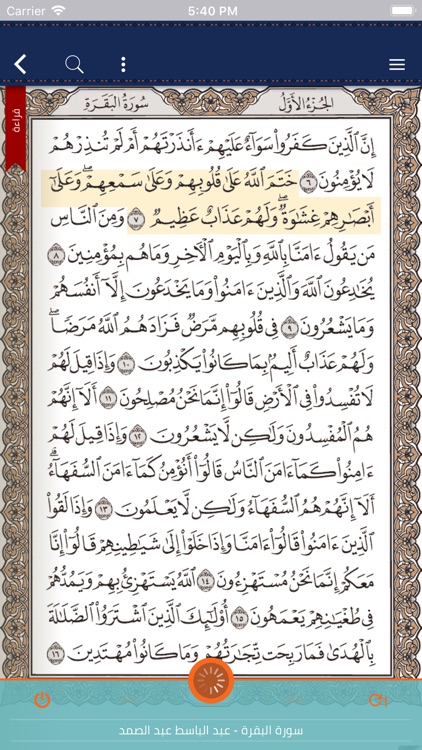 Carrier 5:40 PM
الجزء الأول سورة البقرة
قراءة
إِنَّ ٱلَّذِينَ كَفَرُوا۟ سَوَآءٌ عَلَيْهِمْ ءَأَنذَرْتَهُمْ أَمْ لَمْ تُنذِرْهُمْ
لَا يُؤْمِنُونَ ٦ خَتَمَ ٱللَّهُ عَلَىٰ قُلُوبِهِمْ وَعَلَىٰ سَمْعِهِمْ ۖ وَعَلَىٰٓ
أَبْصَٰرِهِمْ غِشَٰوَةٌ ۖ وَلَهُمْ عَذَابٌ عَظِيمٌ ٧ وَمِنَ ٱلنَّاسِ
مَن يَقُولُ ءَامَنَّا بِٱللَّهِ وَبِٱلْيَوْمِ ٱلْءَاخِرِ وَمَا هُم بِمُؤْمِنِينَ ٨
يُخَٰدِعُونَ ٱللَّهَ وَٱلَّذِينَ ءَامَنُوا۟ وَمَا يَخْدَعُونَ إِلَّآ أَنفُسَهُمْ
وَمَا يَشْعُرُونَ ٩ فِى قُلُوبِهِم مَّرَضٌ فَزَادَهُمُ ٱللَّهُ مَرَضًا ۖ
وَلَهُمْ عَذَابٌ أَلِيمٌۢ بِمَا كَانُوا۟ يَكْذِبُونَ ١٠ وَإِذَا قِيلَ لَهُمْ
لَا تُفْسِدُوا۟ فِى ٱلْأَرْضِ قَالُوٓا۟ إِنَّمَا نَحْنُ مُصْلِحُونَ ١١ أَلَآ إِنَّهُمْ
هُمُ ٱلْمُفْسِدُونَ وَلَٰكِن لَّا يَشْعُرُونَ ١٢ وَإِذَا قِيلَ لَهُمْ
ءَامِنُوا۟ كَمَآ ءَامَنَ ٱلنَّاسُ قَالُوٓا۟ أَنُؤْمِنُ كَمَآ ءَامَنَ ٱلسُّفَهَآءُ ۗ
أَلَآ إِنَّهُمْ هُمُ ٱلسُّفَهَآءُ وَلَٰكِن لَّا يَعْلَمُونَ ١٣ وَإِذَا لَقُوا۟
ٱلَّذِينَ ءَامَنُوا۟ قَالُوٓا۟ ءَامَنَّا وَإِذَا خَلَوْا۟ إِلَىٰ شَيَٰطِينِهِمْ قَالُوٓا۟ إِنَّا
مَعَكُمْ إِنَّمَا نَحْنُ مُسْتَهْزِءُونَ ١٤ ٱللَّهُ يَسْتَهْزِئُ بِهِمْ وَيَمُدُّهُمْ
فِى طُغْيَٰنِهِمْ يَعْمَهُونَ ١٥ أُو۟لَٰٓئِكَ ٱلَّذِينَ ٱشْتَرَوُا۟ ٱلضَّلَٰلَةَ
بِٱلْهُدَىٰ فَمَا رَبِحَت تِّجَٰرَتُهُمْ وَمَا كَانُوا۟ مُهْتَدِينَ ١٦
1
سورة البقرة - عبد الباسط عبد الصمد